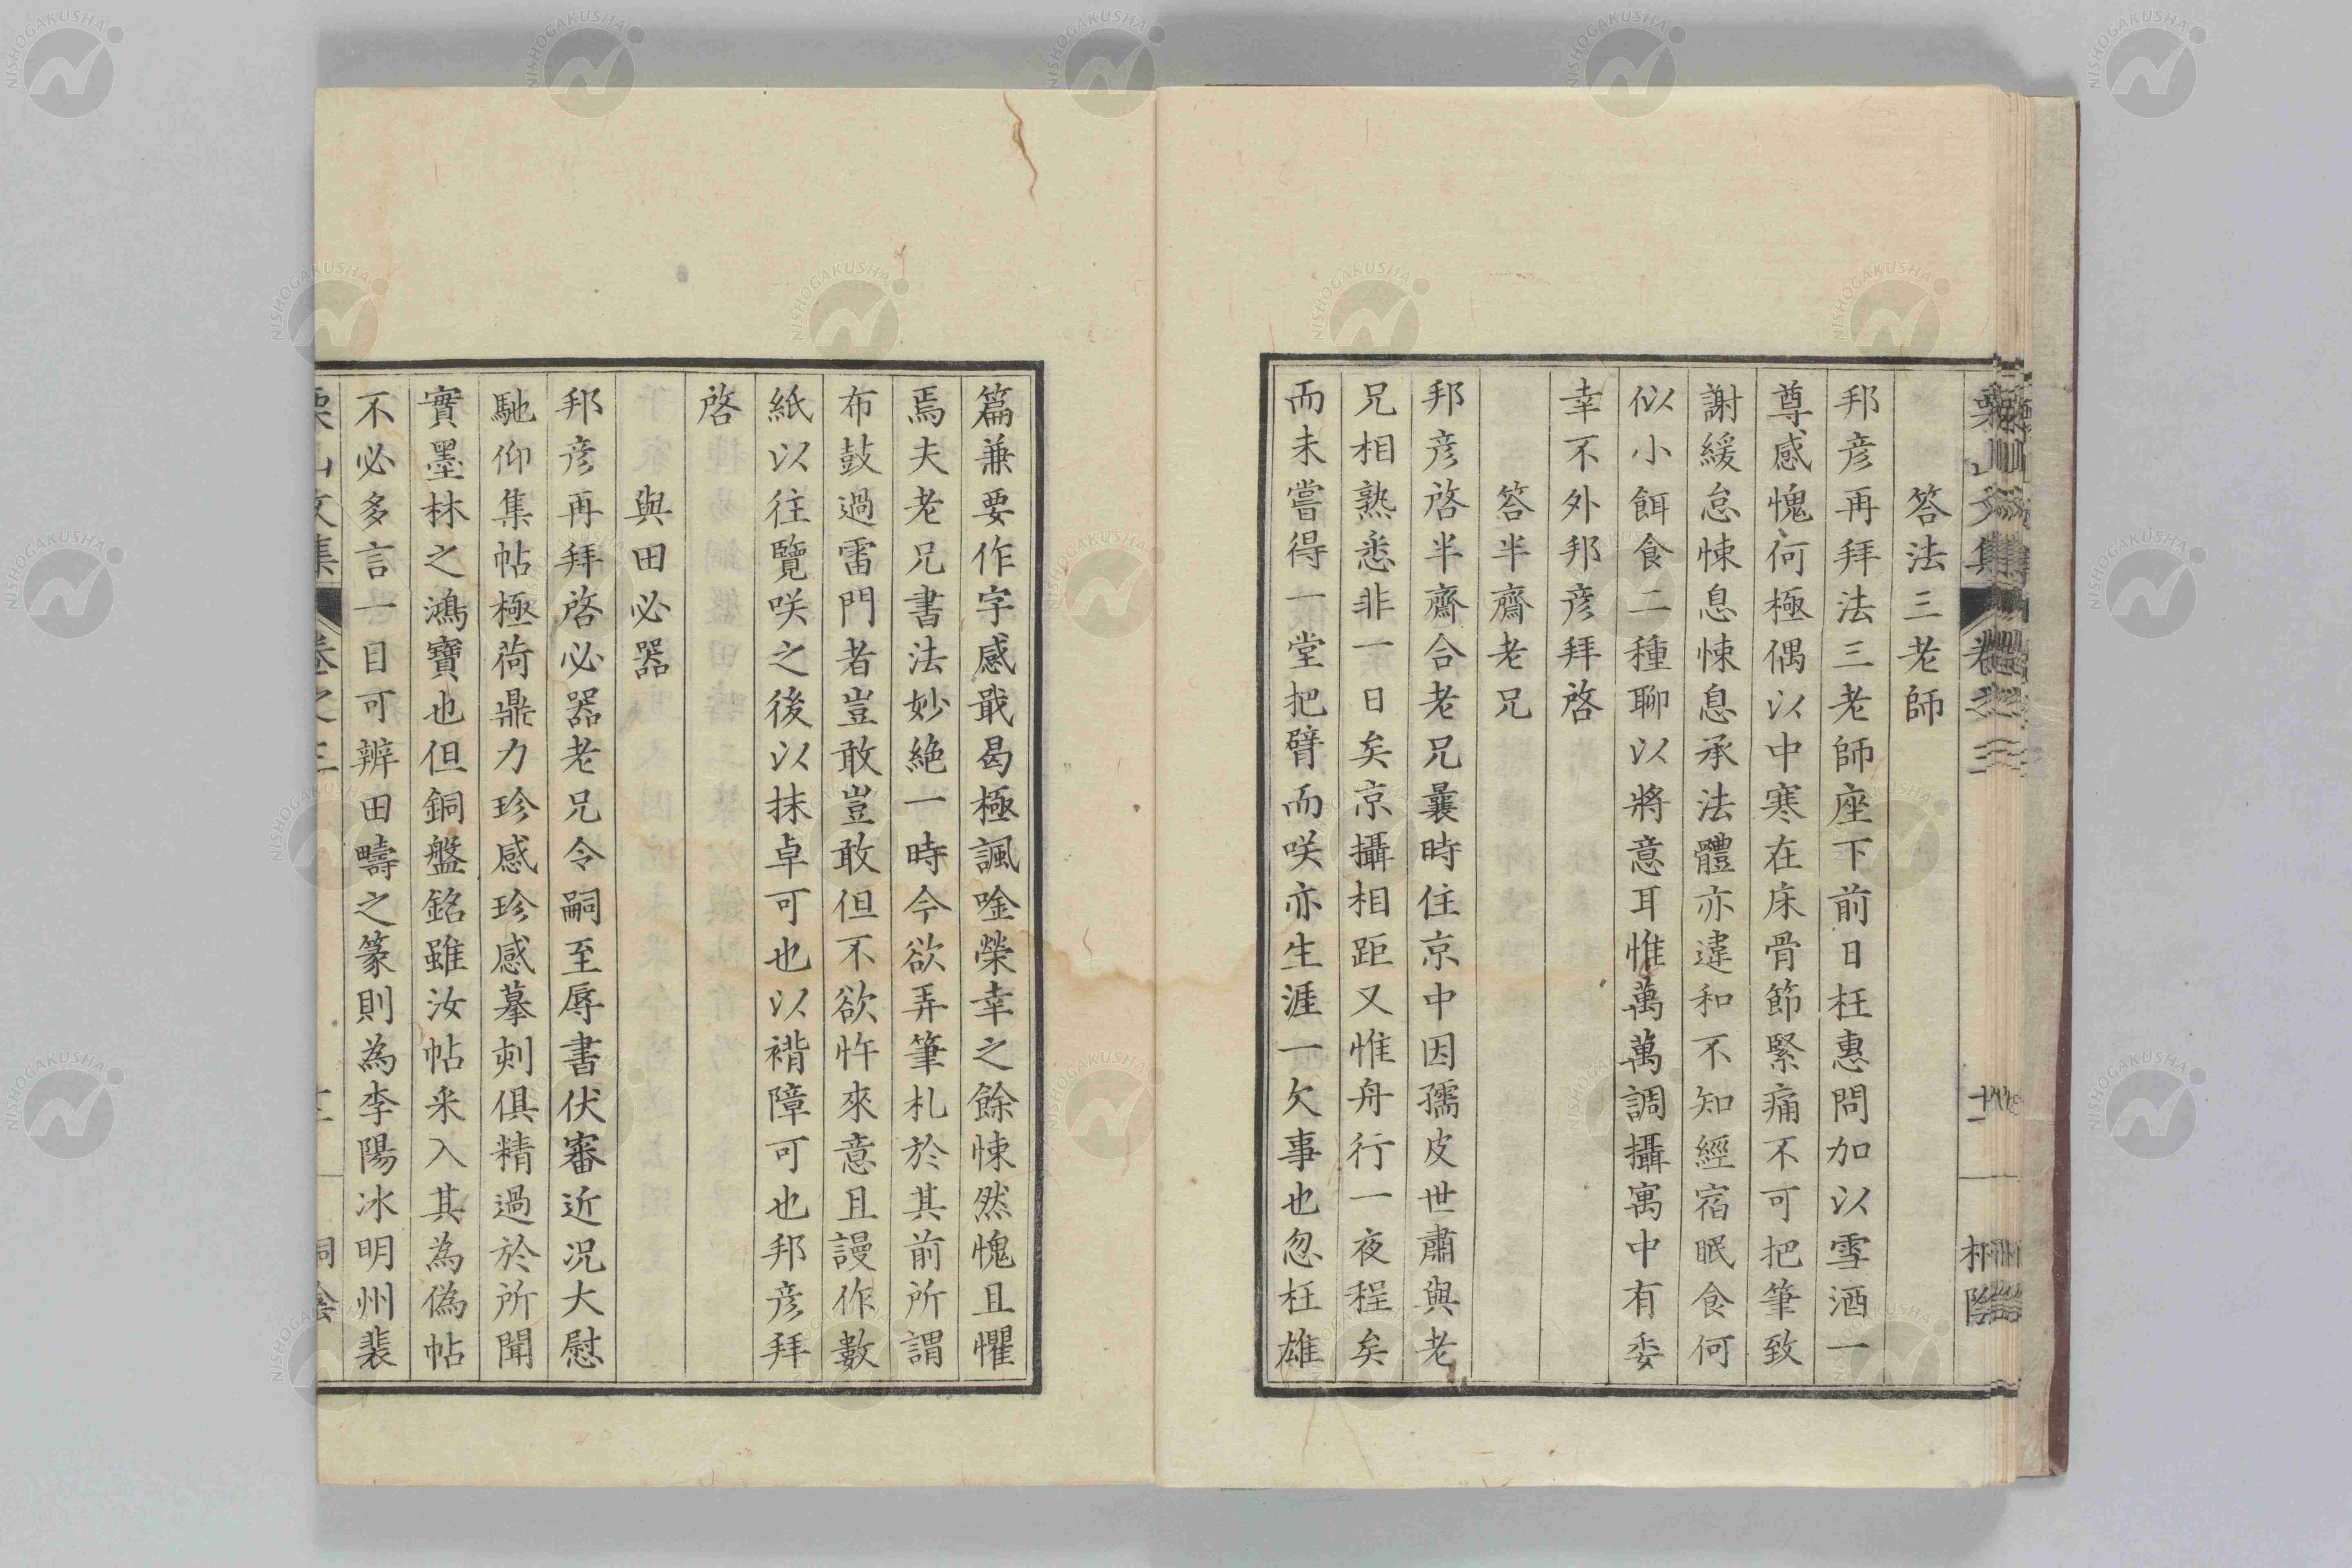 栗山文集 卷之三 十一
答法三老師
邦彦再拜法三老師座下前日枉惠問加以雪酒一
尊感愧何極偶以中寒在床骨節緊痛不可把筆致
謝緩怠悚息悚息承法體亦違和不知經宿眠食何
似小餌食二種聊以將意耳惟萬萬調攝寓中有委
幸不外邦彦拜啓
答半齋老兄
邦彦啓半齋合老兄曩時住京中因孺皮世肅與老
兄相熟悉非一日矣京攝相距又惟舟行一夜程矣
而未嘗得一堂把臂而咲亦生涯一欠事也忽枉雄
篇兼要作字感戢曷極諷唫榮幸之餘悚然愧且懼
焉夫老兄書法妙絶一時今欲弄筆札於其前所謂
布鼓過雷門者豈敢豈敢但不欲忤來意且謾作數
紙以往覽咲之後以抹卓可也以褙障可也邦彦拜
啓
與田必器
邦彦再拜啓必器老兄令嗣至辱書伏審近况大慰
馳仰集帖極荷鼎力珍感珍感摹刺俱精過於所聞
實墨林之鴻寶也但銅盤銘雖汝帖采入其為偽帖
不必多言一目可辨田疇之篆則為李陽冰明州裴
栗山文集 卷之三
NISHOGAKUSHA